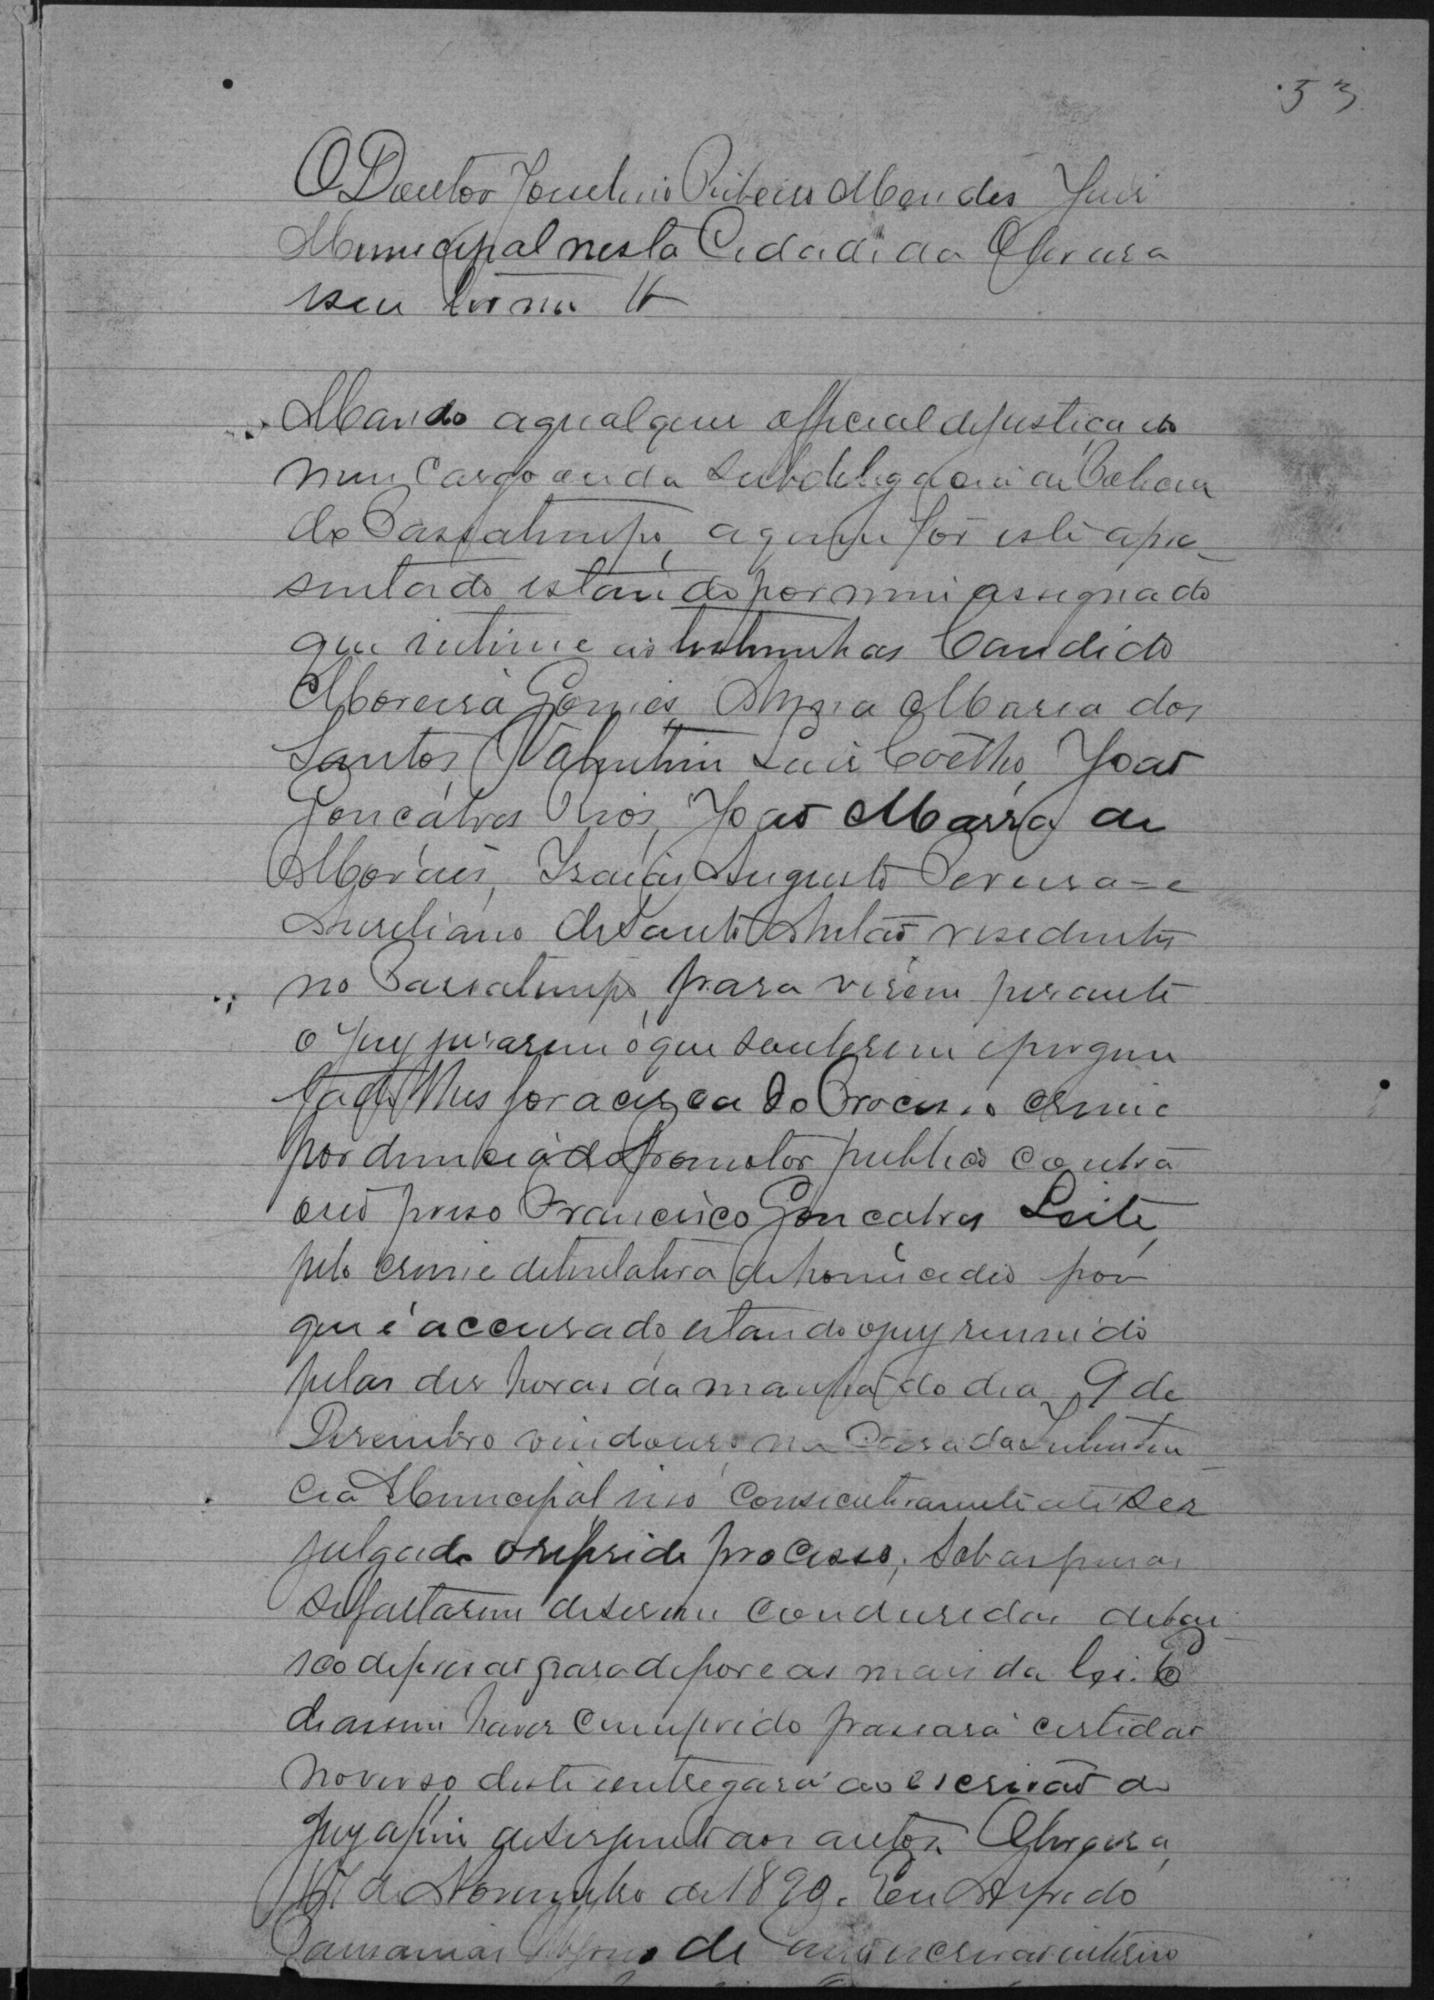 53
O Doutor Ribeiro Mendes Juis
Municipal nesta Cidade da Oliveira
e seu termo &
Mando a qualquer official de justiça do
meu Cargo ou da Subdelegacia da
do Passatempo, a quem for este apre-
sentado estando por mim assignado
que intime as testemunhas Candido
Moreira Gomes, Anna Maria dos
Santos, Valentim Luis Coelho, Joaõ
Gonçalves Rios, Joaõ Marra de
Moraes, Isaias Augusto Pereira = e
Aureliano de residentes
no Passatempo, para virem perante
o jury jurarem o que souberem e pergun
tado lhes for acerca do Processo crime
por denuncia do promotor publico contra
o reó preso Francisco Gonçalves Leite,
pelo crime de tentativa de homicidio por
que é accusado, estando o jury reunido
pelas des horas da manhã do dia 9 de
Desembro vindouro, na Casa da Intenden
cia Municipal consecutivamente até ser
julgado o referido processo, sob as penas
se faltarem de serem condusidas debai
xo de para depor e as mais da lei. E
de assim haver cumprido passará certidaõ
no verso deste entregará ao escrivaõ do
jury afim de ser junto aos autos. Oliveira,
de Novembro de 1890. Eu Alfredo
de escrivaõ interino